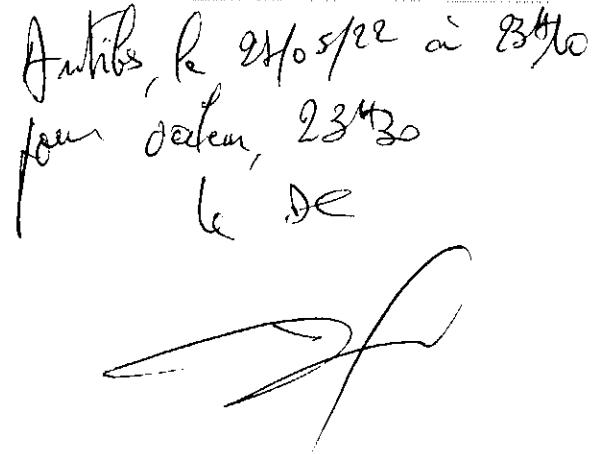 Antibes, le 21/05/22 à 23H10
pour valeur, 23H30
le DC